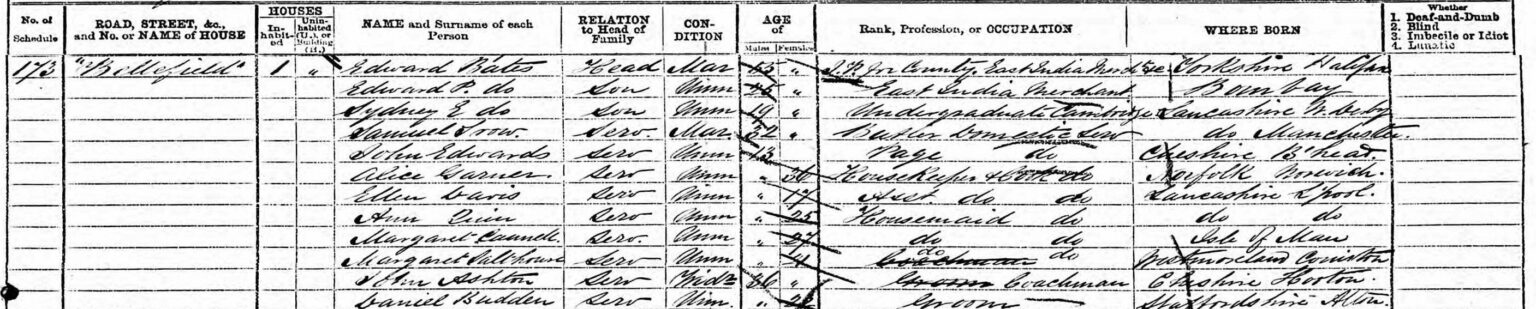 No. of Schedule | ROAD, STREET, &c., and No. or NAME of HOUSE | HOUSES In-habit-ed | Unin-habited (U.), or Building (B.) | NAME and Surname of each Person | RELATION to Head of Family | CON-DITION | AGE of Males | Females | Rank, Profession, or OCCUPATION | WHERE BORN | Whether 1. Deaf-and-Dumb 2. Blind 3. Imbecile or Idiot 4. Lunatic
173 "Bellefield" 1 " Edward Bates Head Mar " J.P. for County, East India Yorkshire Halifax
Edward P. do son Unm " East India Merchant Bombay
Sydney E do son Unm 19 " Undergraduate Cambridge Lancashire W. Derby
Samuel Trow. Serv. Mar. 32 " Butler Domestic Serv do Manchester.
John Edwards Serv Unm 13 " Page do Cheshire B'head.
Alice Garner. Serv Unm " 30 Housekeeper & Cook do Norfolk Norwich.
Ellen Davis Serv Unm " 17 Asst do do Lancashire L'pool.
Ann Quin Serv Unm " 25 Housemaid do do do
Margaret Serv. Unm " 27 do do Isle of Man
Margaret Serv Unm " do do Westmoreland Coniston
John Ashton Serv Widr " Coachman Cheshire Hooton.
Daniel Budden Serv Unm. " Groom Staffordshire Alton.